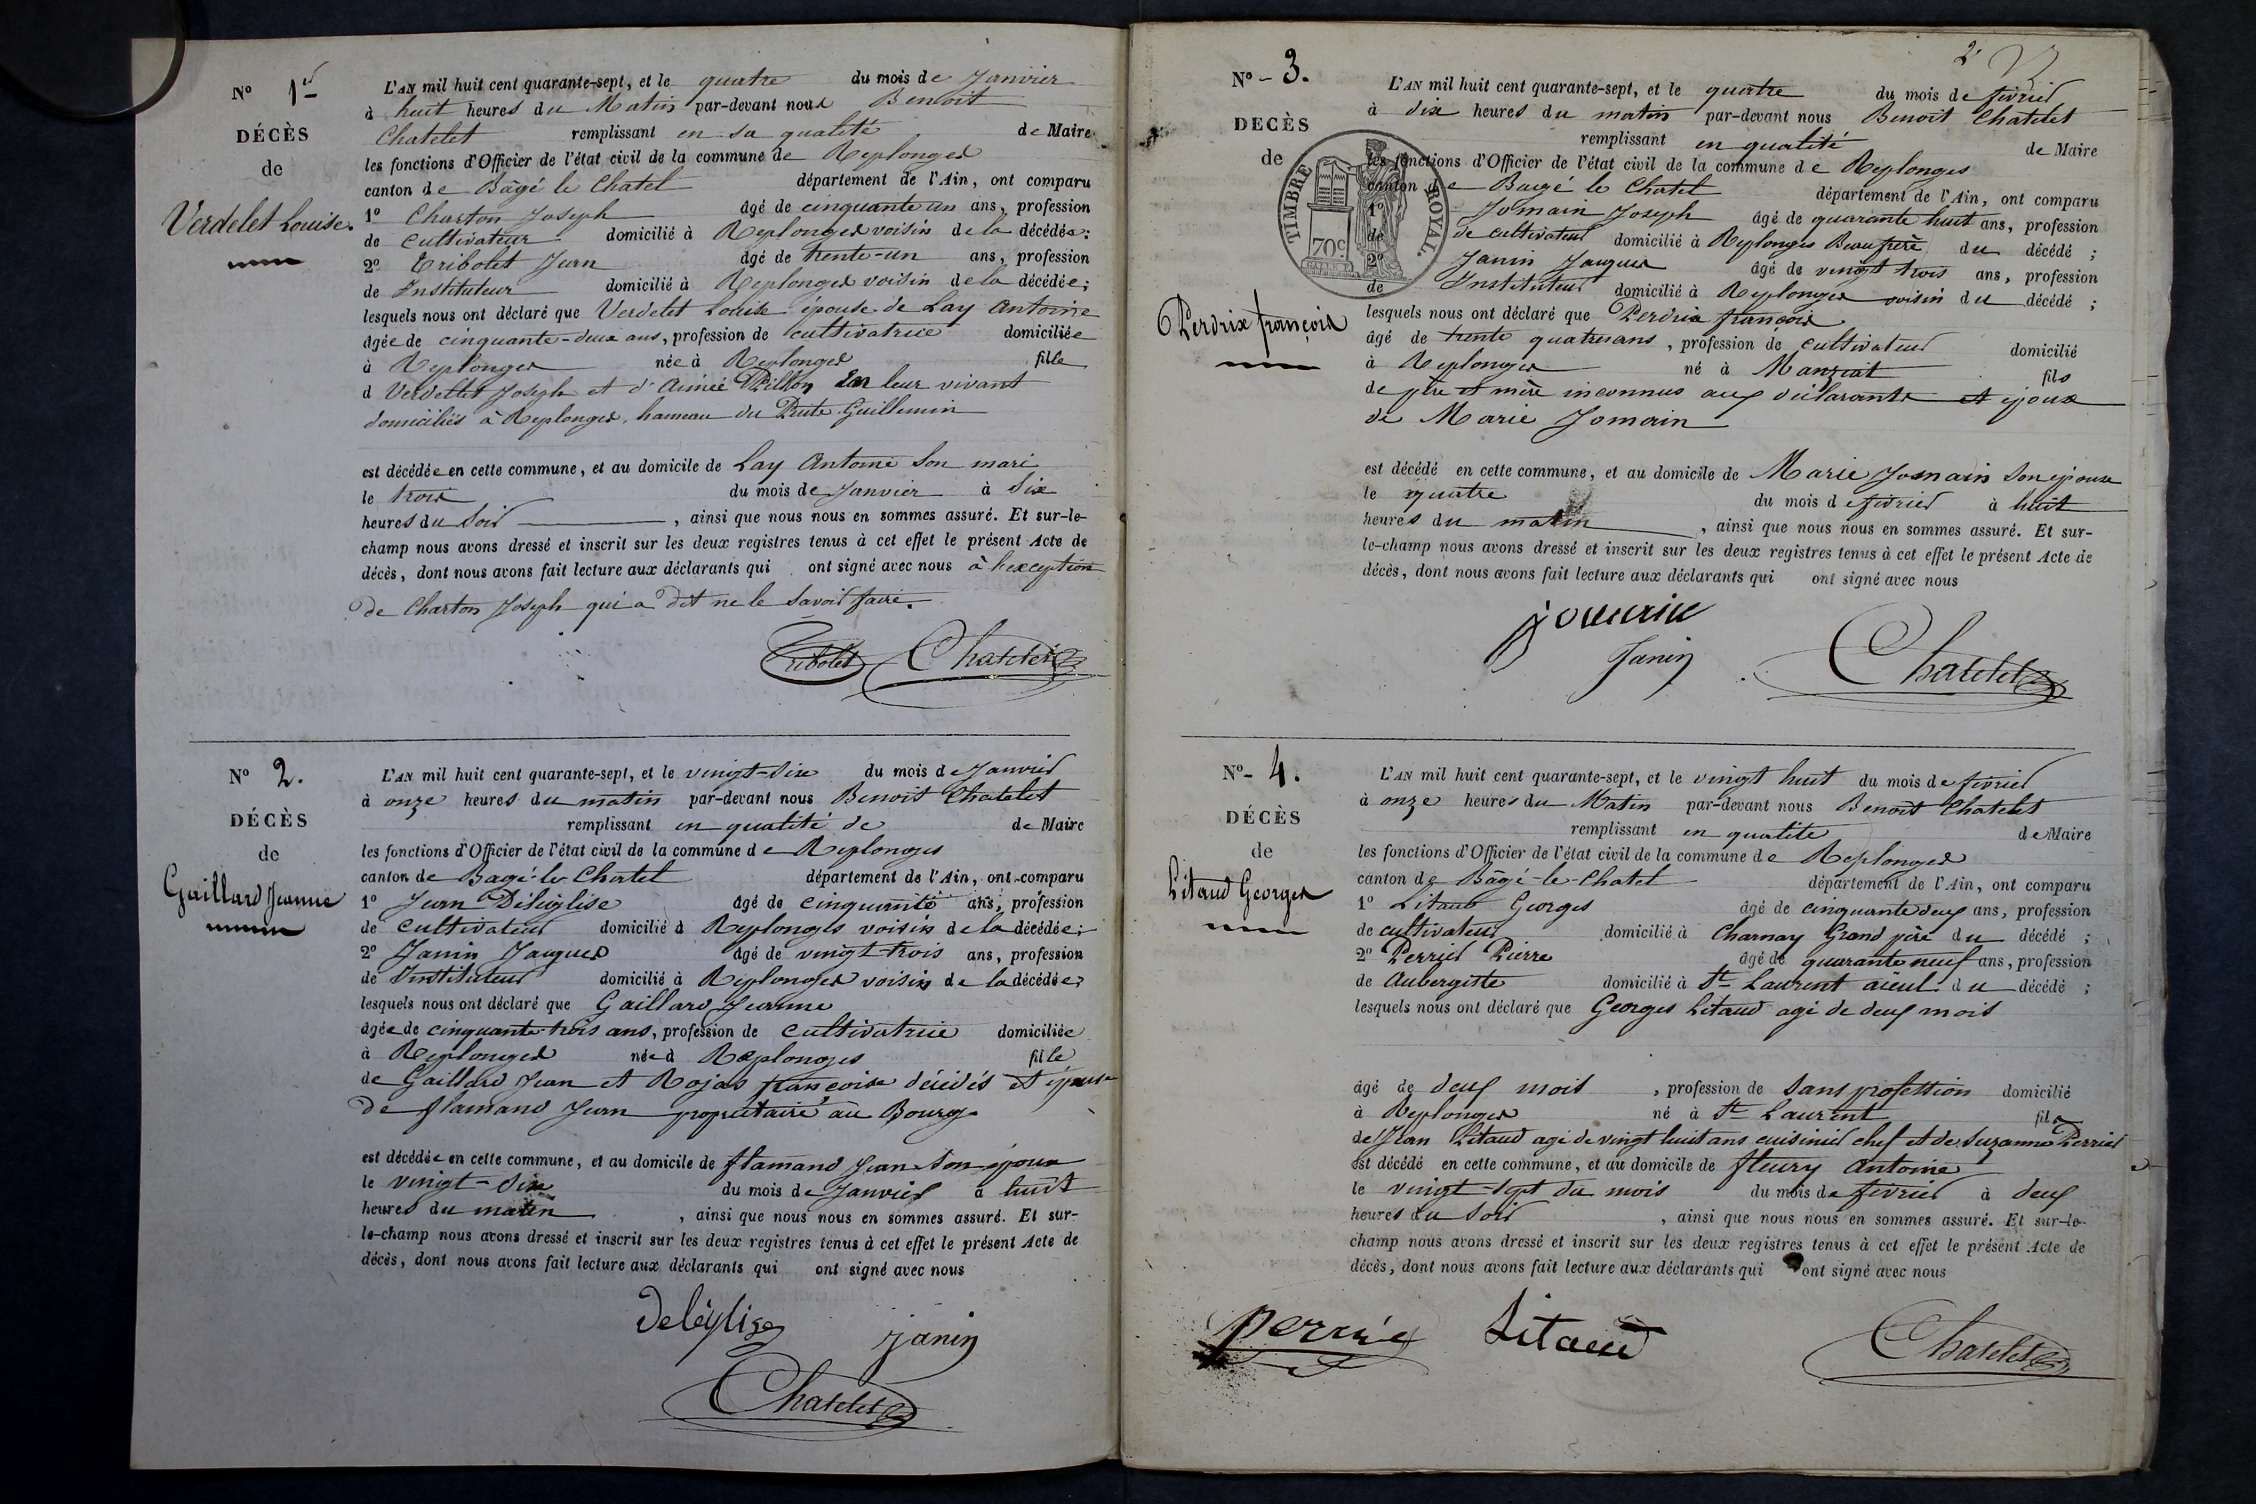 N° 1er
DÉCÈS
de
Verdelet Louise.
L'AN mil huit cent quarante-sept, et le quatre du mois de Janvier
à huit heures du Matin par-devant nous Benoit
Chatelet remplissant en sa qualité de Maire
les fonctions d'Officier de l'état civil de la commune de Replonges
canton de Bâgé le Chatel département de l'Ain, ont comparu
1° Charton Joseph âgé de cinquante un ans, profession
de cultivateur domicilié à Replonges voisin de la décédée:
2° Tribolet Jean âgé de trente-un ans, profession
de Instituteur domicilié à Replonges voisin de la décédée;
lesquels nous ont déclaré que Verdelet Louise épouse de Lay Antoine
âgée de cinquante-deux ans, profession de cultivatrice domiciliée
à Replonges née à Replonges fille
d Verdelet Joseph et d'Aimée Pillon En leur vivant
domiciliés à Replonges, hameau du Guillemin
est décédée en cette commune, et au domicile de Lay Antoine son mari
le trois du mois de Janvier à Six
heures du Soir, ainsi que nous nous en sommes assuré. Et sur-le-
champ nous avons dressé et inscrit sur les deux registres tenus à cet effet le présent Acte de
décès, dont nous avons fait lecture aux déclarants qui ont signé avec nous à l'exception
de Charton Joseph qui a dit ne le Savoir faire.
Tribolet Chatelet
N° 2.
DÉCÈS
de
Gaillard Jeanne
L'AN mil huit cent quarante-sept, et le vingt-Six du mois de Janvier
à onze heures du matin par-devant nous Benoit Chatelet
remplissant en qualité de de Maire
les fonctions d'Officier de l'état civil de la commune de Replonges
canton de Bagé-le-Chatel département de l'Ain, ont comparu
1° Jean Déléglise âgé de cinquante ans, profession
de cultivateur domicilié à Replonges voisin de la décédée;
2° Janin Jacques âgé de vingt-trois ans, profession
de Instituteur domicilié à Replonges voisin de la décédée;
lesquels nous ont déclaré que Gaillard Jeanne
âgée de cinquante-trois ans, profession de cultivatrice domiciliée
à Replonges née à Replonges fille
de Gaillard Jean et Rojas françoise décédés et épouse
de flamand Jean propriétaire au Bourg
est décédée en cette commune, et au domicile de flamand Jean Son époux
le vingt-Six du mois de Janvier à huit
heures du matin, ainsi que nous nous en sommes assuré. Et sur-
le-champ nous avons dressé et inscrit sur les deux registres tenus à cet effet le présent Acte de
décès, dont nous avons fait lecture aux déclarants qui ont signé avec nous
Deléglise janin
Chatelet
2e
N° 3.
DECÈS
de
Perdrix françois
TIMBRE ROYAL.
70c
L'AN mil huit cent quarante-sept, et le quatre du mois de février
à dix heures du matin par-devant nous Benoit Chatelet
remplissant en qualité de Maire
les fonctions d'Officier de l'état civil de la commune de Replonges
canton de Baugé le Chatel département de l'Ain, ont comparu
1° Jomain Joseph âgé de quarante huit ans, profession
de de cultivateur domicilié à Replonges Beaufrère du décédé;
2° Janin Jacques âgé de vingt trois ans, profession
de Instituteur domicilié à Replonges voisin du décédé;
lesquels nous ont déclaré que Perdrix françois
âgé de trente quatre ans, profession de cultivateur domicilié
à Replonges né à Manziat fils
de père et mère inconnus aux déclarants et époux
de Marie Jomain
est décédé en cette commune, et au domicile de Marie Jomain Son épouse
le quatre du mois de février à huit
heures du matin, ainsi que nous nous en sommes assuré. Et sur-
le-champ nous avons dressé et inscrit sur les deux registres tenus à cet effet le présent Acte de
décès, dont nous avons fait lecture aux déclarants qui ont signé avec nous
jomain
Janin Chatelet
N° 4.
DÉCÈS
de
Litaud Georges
L'AN mil huit cent quarante-sept, et le vingt huit du mois de février
à onze heures du Matin par-devant nous Benoit Chatelet
remplissant en qualité de Maire
les fonctions d'Officier de l'état civil de la commune de Replonges
canton de Bâgé-le-Chatel département de l'Ain, ont comparu
1° Litaud Georges âgé de cinquante deux ans, profession
de cultivateur domicilié à Charnay Grand père du décédé;
2° Perrier Pierre âgé de quarante neuf ans, profession
de Aubergiste domicilié à St Laurent aïeul du décédé;
lesquels nous ont déclaré que Georges Litaud agé de deux mois
âgé de deux mois, profession de Sans profession domicilié
à Replonges né à St Laurent fils
de Jean Litaud agé de vingt huit ans cuisinier chef et de Suzanne Perrier
est décédé en cette commune, et au domicile de fleury Antoine
le vingt-Sept du mois du mois de février à deux
heures du Soir, ainsi que nous nous en sommes assuré. Et sur-le-
champ nous avons dressé et inscrit sur les deux registres tenus à cet effet le présent Acte de
décès, dont nous avons fait lecture aux déclarants qui ont signé avec nous
Litaud Chatelet